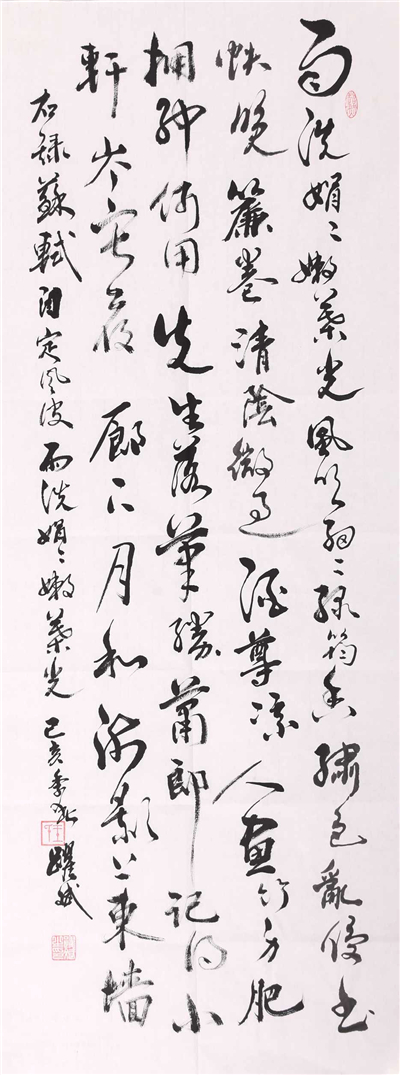 雨洗娟〻嫩葉光風吹細〻綠筠香繡色亂侵书
帙晚簾卷清陰微過酒尊涼人畫竹身肥
拥肿何用先生落筆勝蕭郎記得小
軒岑寂夜廊下月和疏影上東墻
右録蘇軾詞定風波雨洗娟〻嫩葉光己亥季秋躍斌